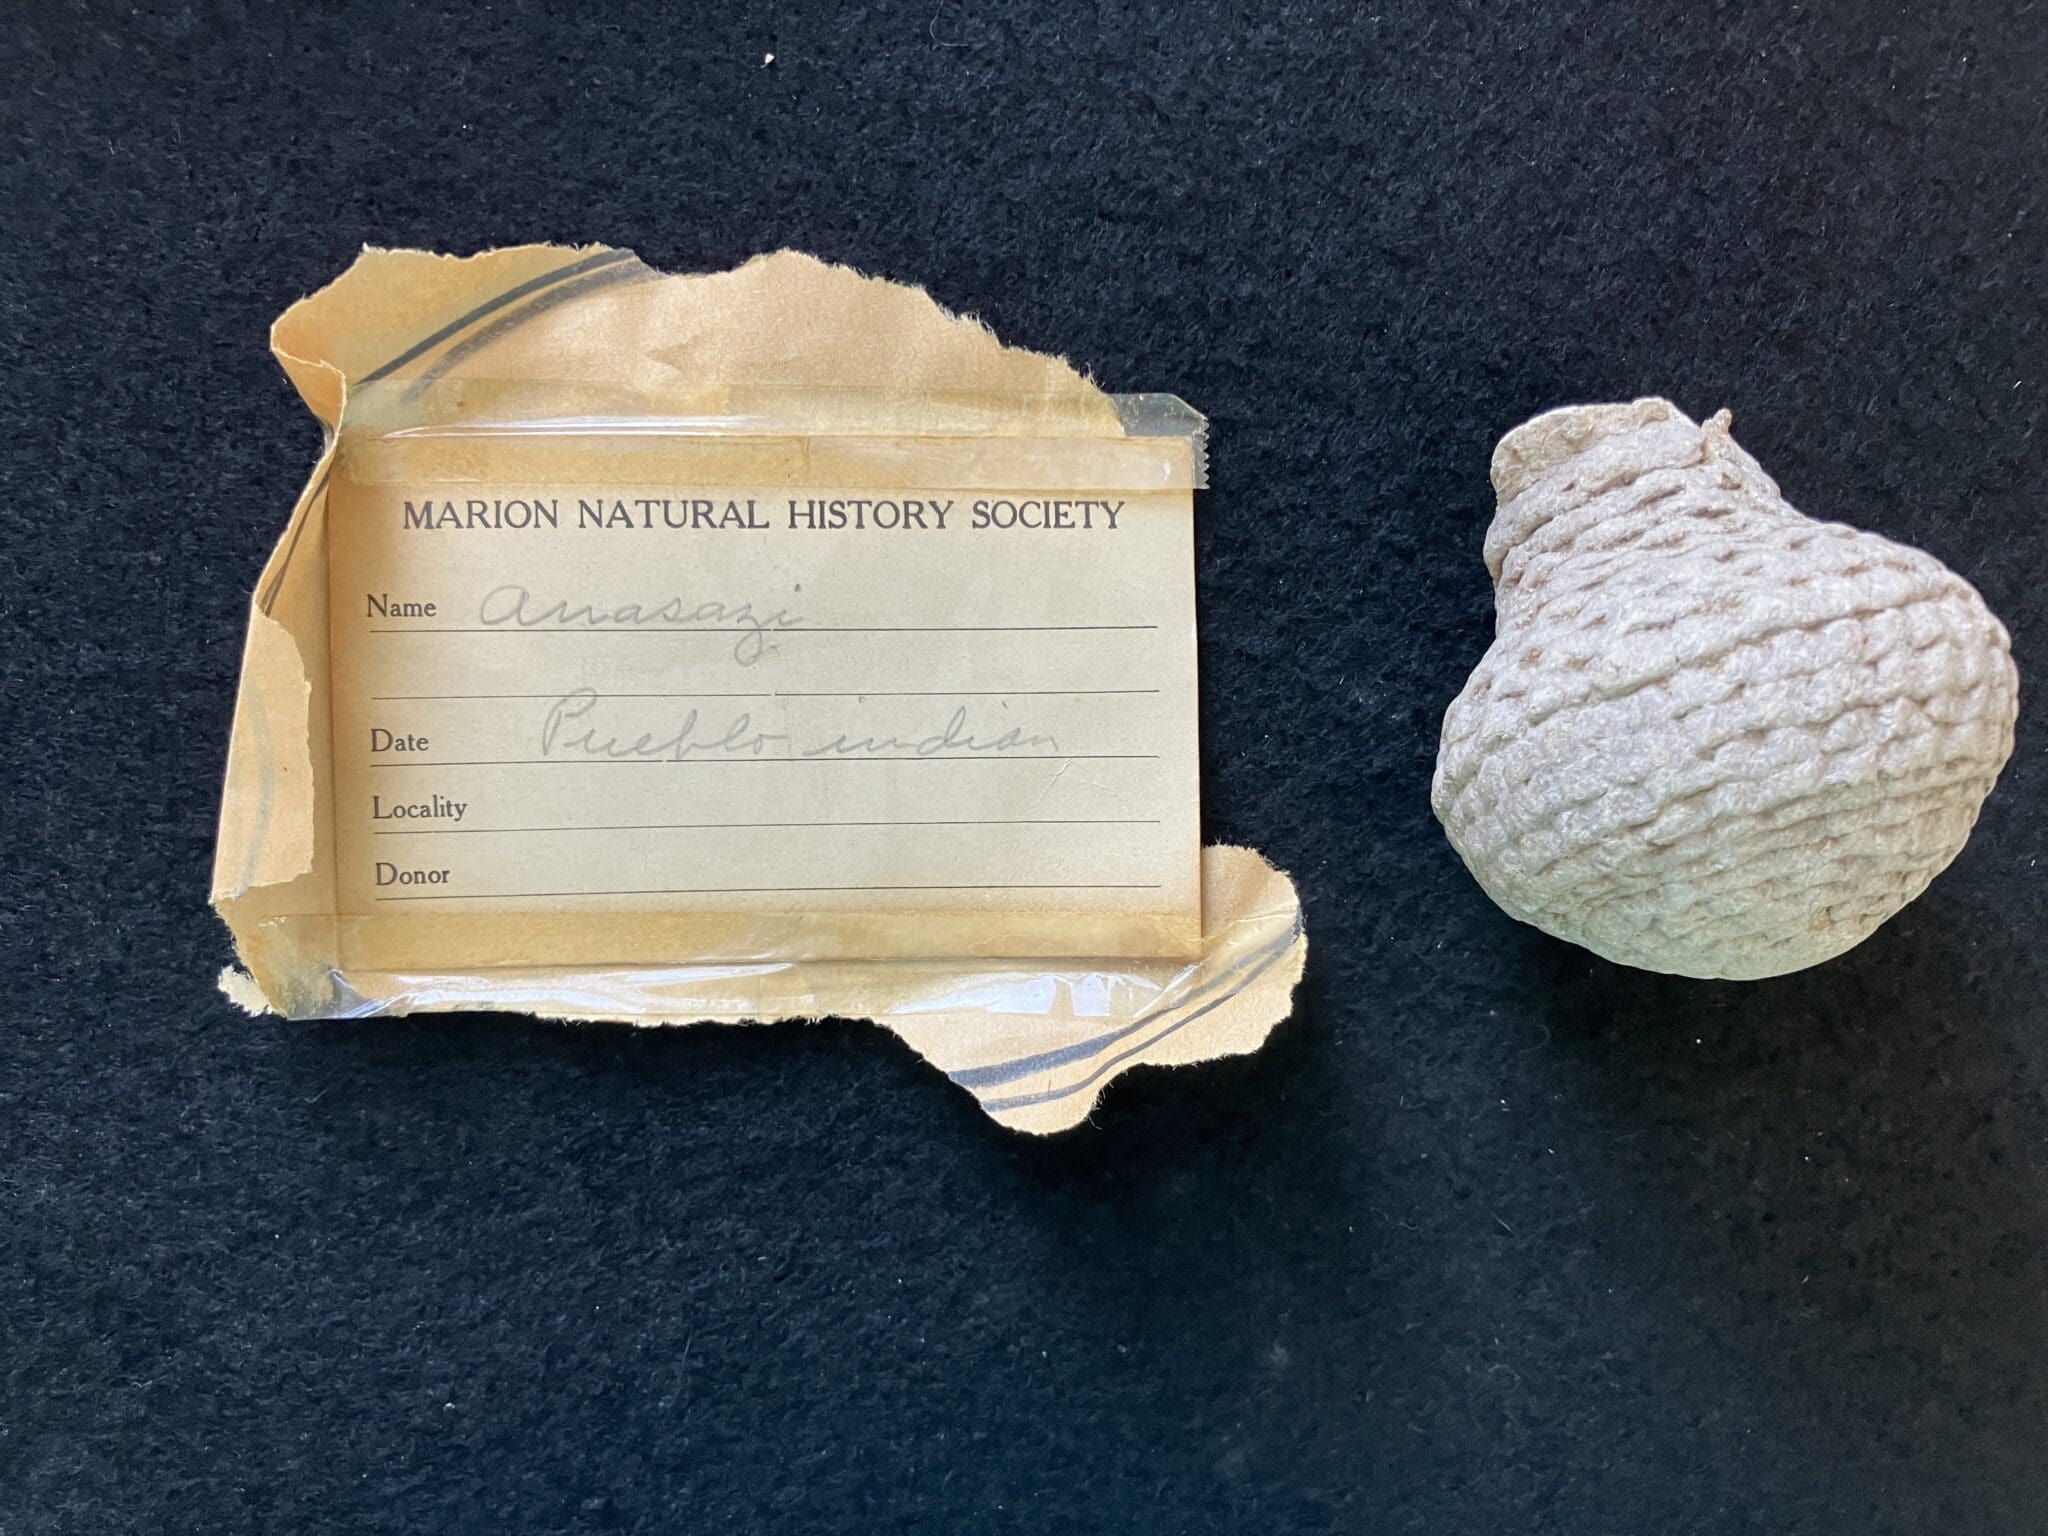 MARION NATURAL HISTORY SOCIETY
Name Anasazi
Date Pueblo indian
Locality
Donor